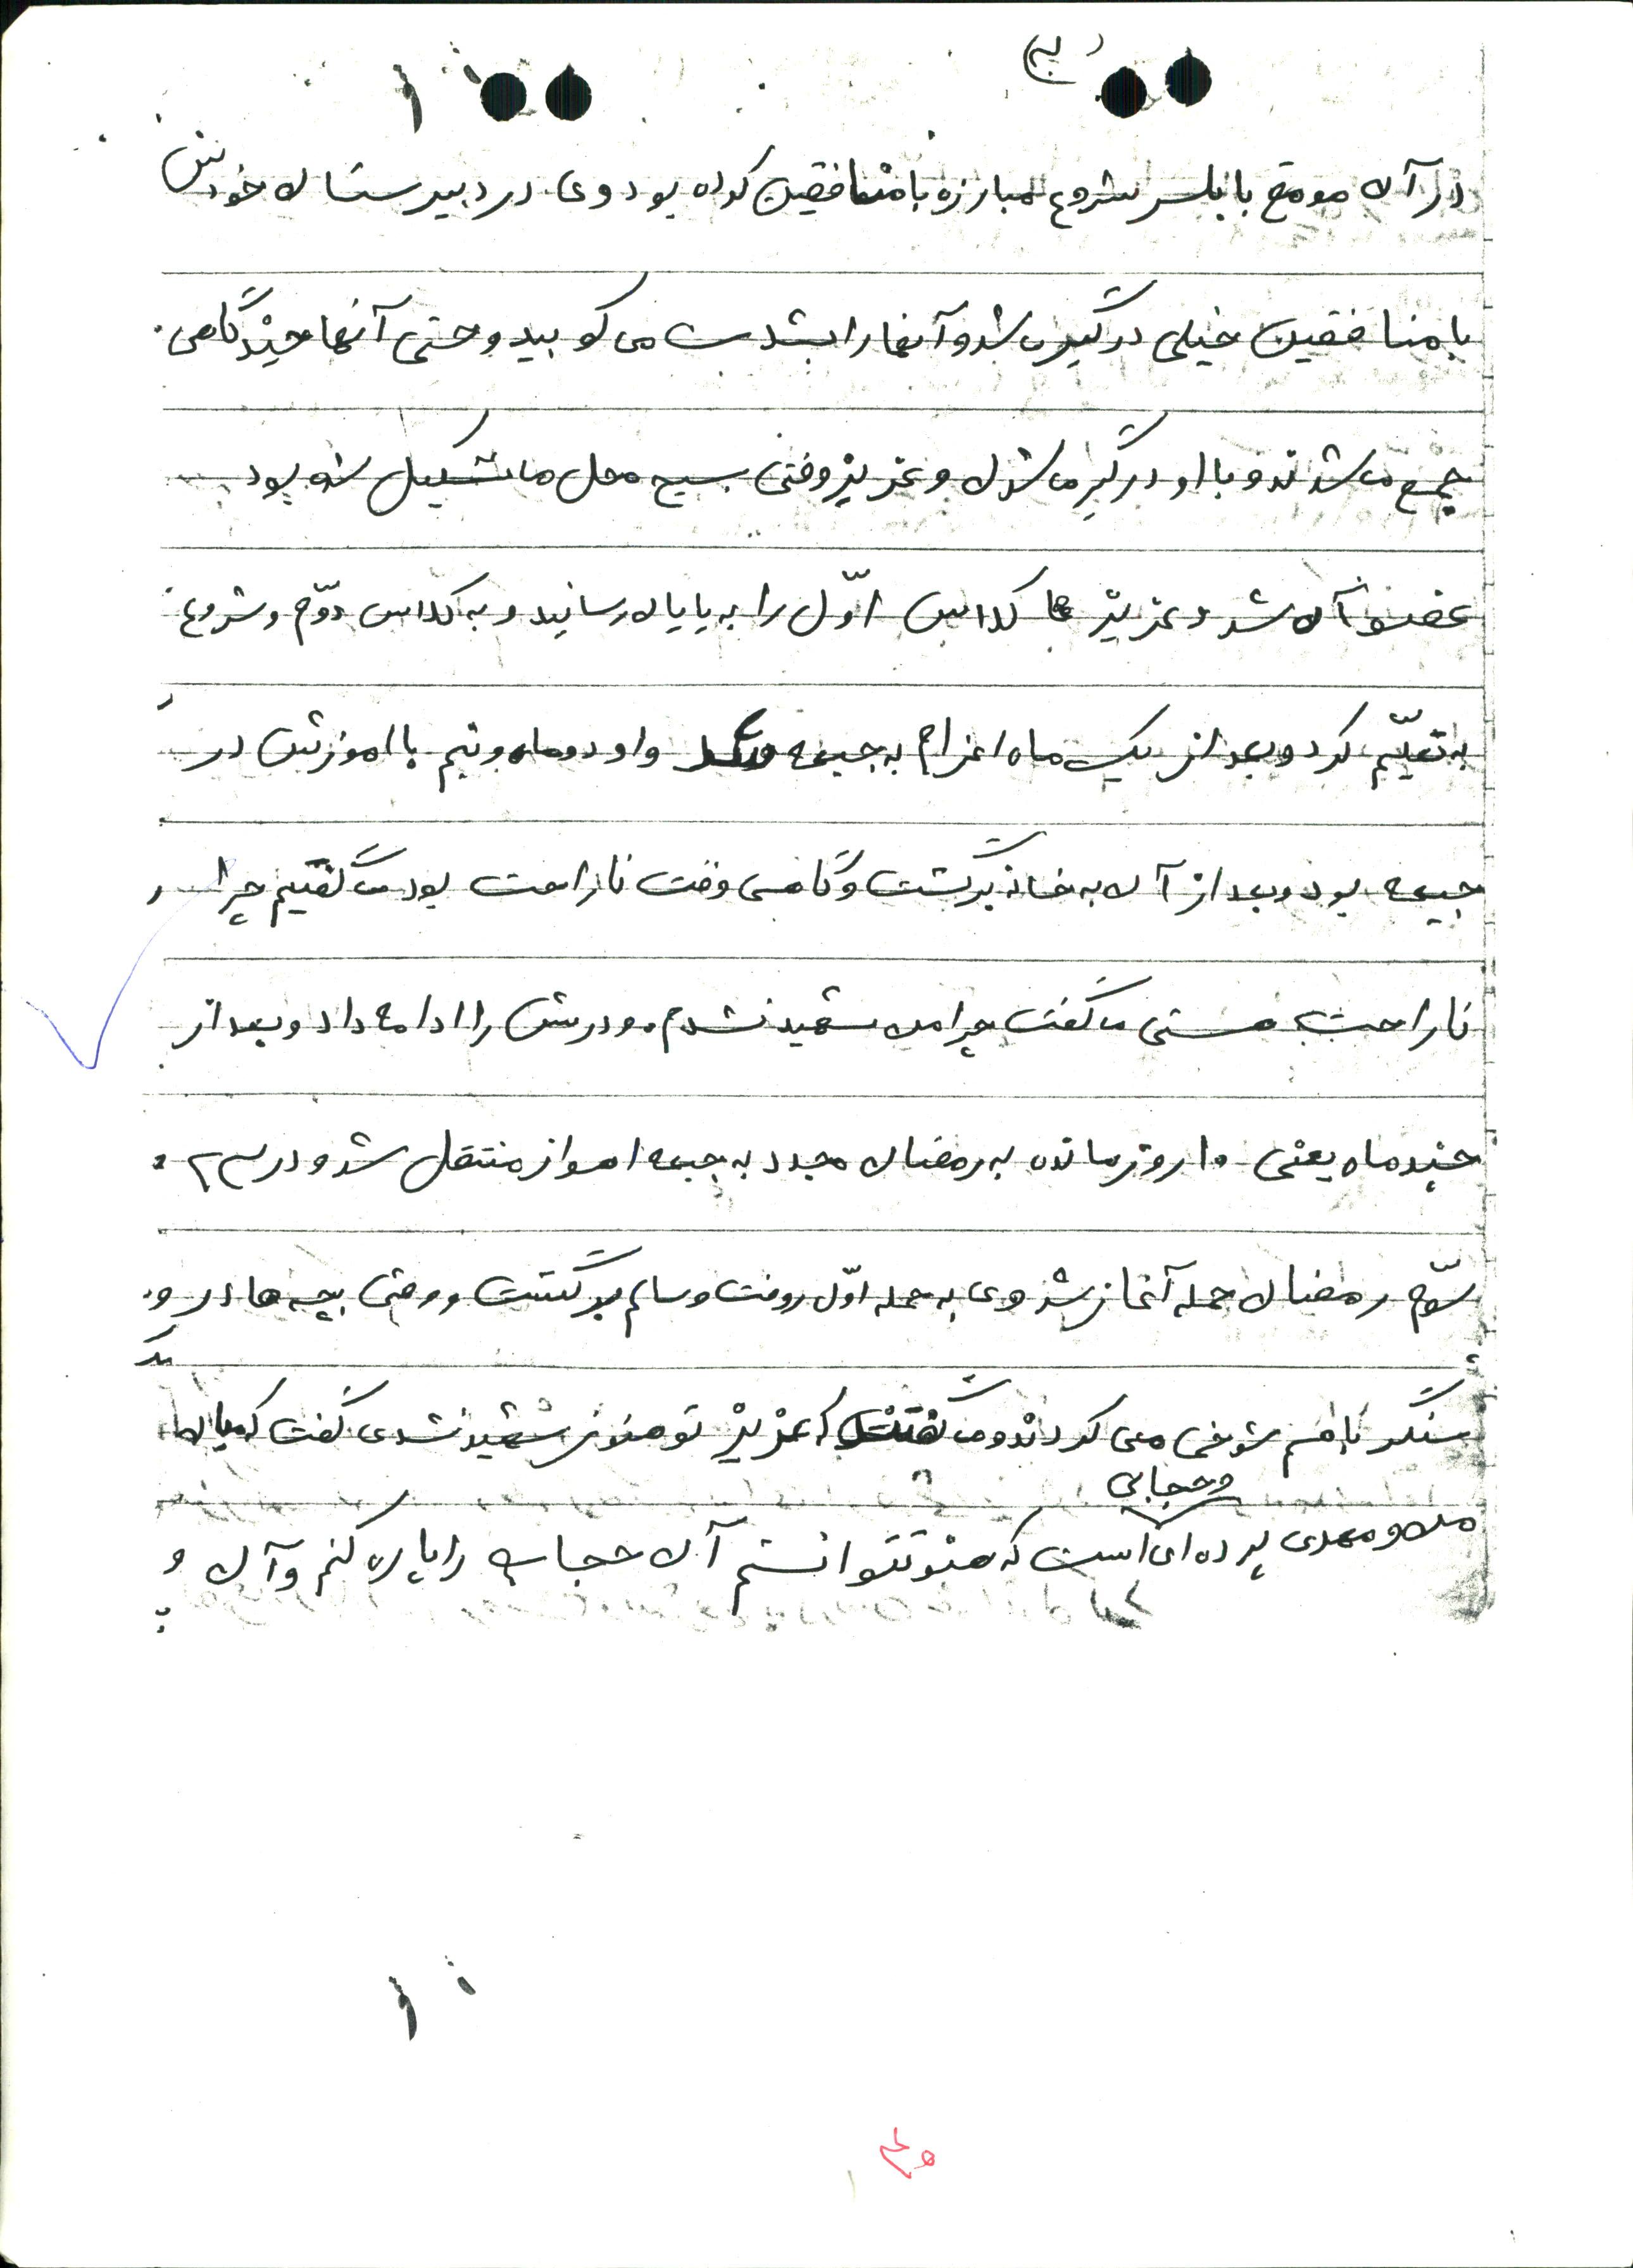 در آن موقع بابلسر شروع مبارزه با منافقین کرده بود وی در دبیرستان خودش
با منافقین خیلی درگیر می شد و آنها را بشدت می کوبید و حتی آنها چند گاهی
جمع می شدند و با او درگیر می شدن و عزیز وقتی بسیج محل ما تشکیل شده بود
عضو آن شد و عزیز ما کلاس اوّل را به پایان رسانید و به کلاس دوّم و شروع
به تعلیّم کرد و بعد از یک ماه اعزام به جبهه شد و او دو ماه و نیم با اموزش در
جبهه بود و بعد از آن به خانه برگشت و گاهی وقت ناراحت بود می گفتیم چرا
ناراحت هستی می گفت چرا من شهید نشدم. و درسش را ادامه داد و بعد از
چند ماه یعنی ۱۰ روز مانده به رمضان مجدد به جبهه اهواز منتقل شد و در
سوّم رمضان حمله آغاز شد وی به حمله اوّل رفت و سالم برگشت و وقتی بچه ها در
سنگر باهم شوخی می کردند و می گفتند که عزیز تو هنوز شهید نشدی گفت که میان
و حجابی
من و مهدی پرده ای است که هنوز نتوانستم آن حجاب را پاره کنم و آن
۴۵